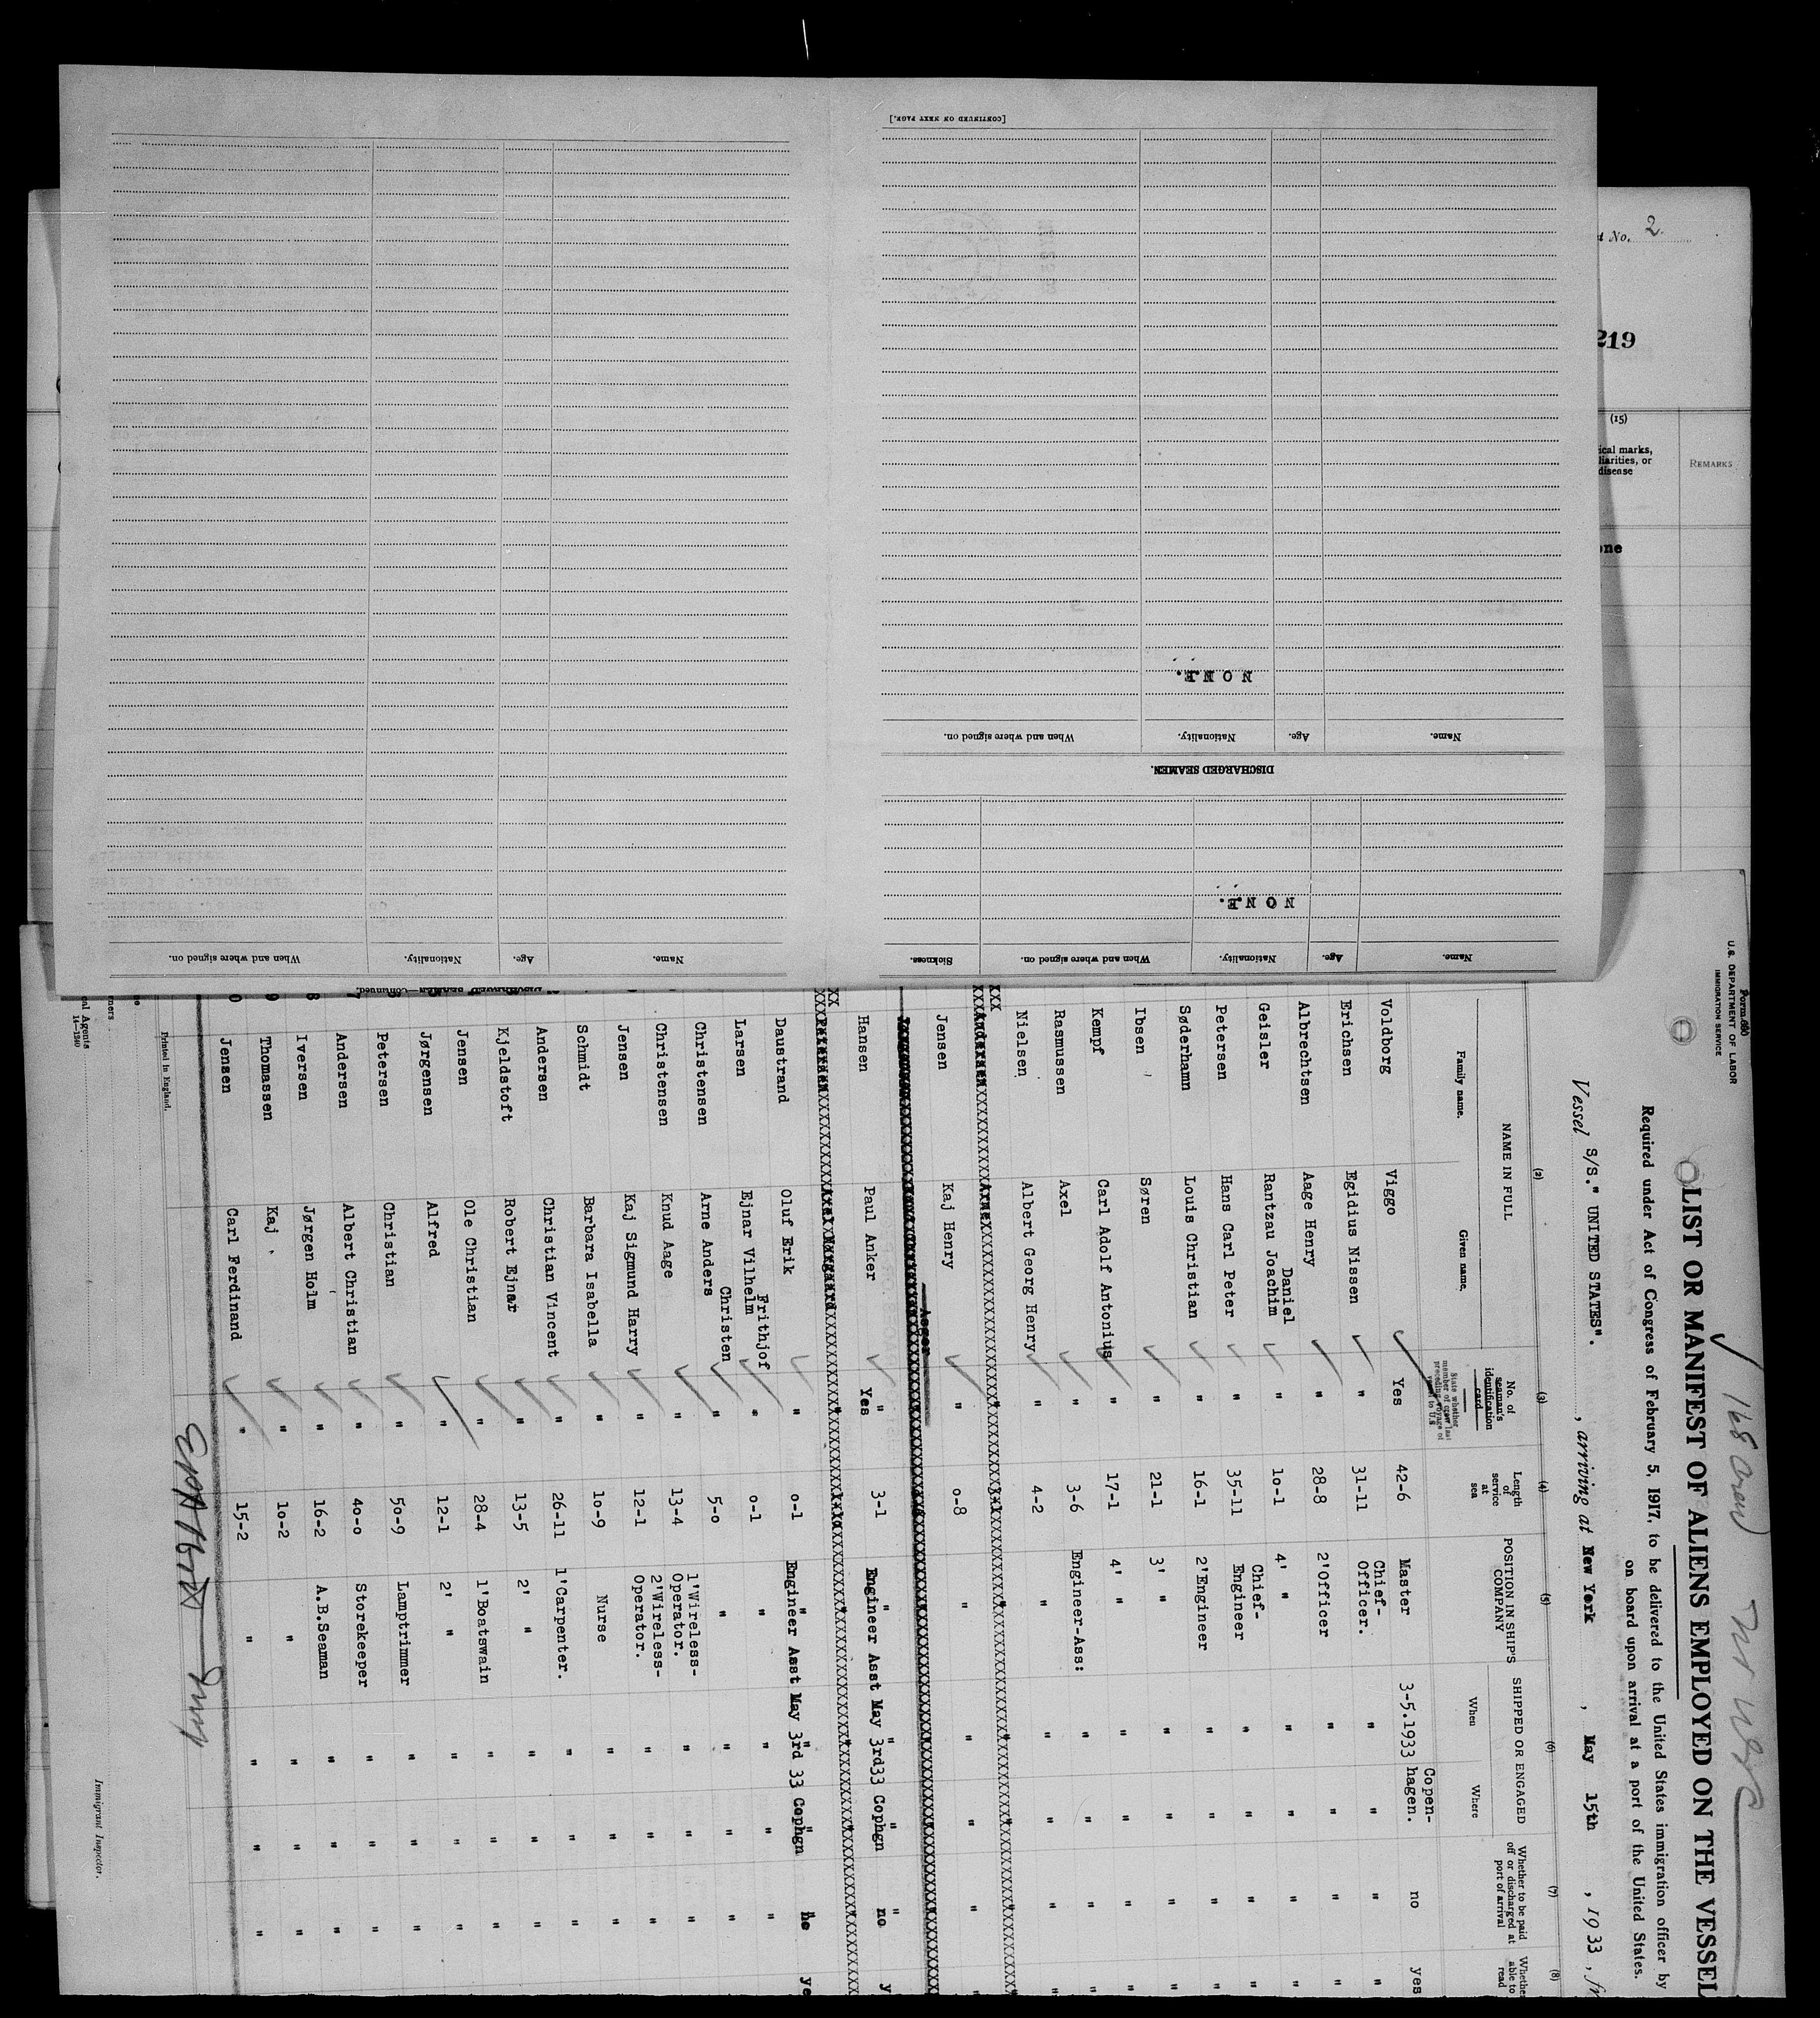 [CONTINUED ON NEXT PAGE.]
NONE.
When and where signed on. Nationality. Age. Name.
DISCHARGED SEAMEN.
NONE.
Sickness. When and where signed on. Nationality. Age. Name.
When and where signed on. Nationality. Age. Name.
No. 2
219
(15)
ical marks,
liarities, or
disease
REMARKS
one
Form 680
U.S. DEPARTMENT OF LABOR
IMMIGRATION SERVICE
LIST OR MANIFEST OF ALIENS EMPLOYED ON THE VESSEL
Required under Act of Congress of February 5, 1917, to be delivered to the United States immigration officer by
on board upon arrival at a port of the United States.
Vessel S/S." UNITED STATES". , arriving at New York , May 15th , 1933, fr
(2) (3) (4) (5) (6) (7) (8)
NAME IN FULL
Family name. Given name.
No. of seaman's identification card
State whether member of crew last preceding voyage of vessel to U.S
Length of service at sea
POSITION IN SHIP'S COMPANY
SHIPPED OR ENGAGED
When Where
Whether to be paid off or discharged at port of arrival
Whether able to read
Voldborg Viggo Yes 42-6 Master 3-5.1933 Copen-hagen. no yes
Erichsen Egidius Nissen " 31-11 Chief-Officer. " " " "
Albrechtsen Aage Henry " 28-8 2'Officer " " " "
Geisler Rantzau Joachim Daniel " 10-1 4' " " " " "
Petersen Hans Carl Peter " 35-11 Chief-Engineer " " " "
Søderhamn Louis Christian " 16-1 2'Engineer " " " "
Ibsen Søren " 21-1 3' " " " " "
Kempf Carl Adolf Antonius " 17-1 4' " " " " "
Rasmussen Axel " 3-6 Engineer-Ass: " " " "
Nielsen Albert Georg Henry " 4-2 " " " " "
Jensen Kaj Henry " 0-8 " " " " "
Asger
Hansen Paul Anker Yes 3-1 Engineer Asst May 3rd33 Cophgn no y
Daustrand Oluf Erik " 0-1 Engineer Asst May 3rd 33 Cophgn no ye
Larsen Ejnar Vilhelm Frithjof " 0-1 " " " "
Christensen Arne Anders Christen " 5-0 " " " "
Christensen Knud Aage " 13-4 1'Wireless-Operator. " " "
Jensen Kaj Sigmund Harry " 12-1 2'Wireless-Operator. " " "
Schmidt Barbara Isabella " 10-9 Nurse " " "
Andersen Christian Vincent " 26-11 1'Carpenter. " " "
Kjeldstoft Robert Ejnar " 13-5 2' " " " "
Jensen Ole Christian " 28-4 1'Boatswain " " "
Jørgensen Alfred " 12-1 2' " " " "
Petersen Christian " 50-9 Lamptrimmer " " "
Andersen Albert Christian " 40-0 Storekeeper " " "
Iversen Jørgen Holm " 16-2 A.B.Seaman " " "
Thomassen Kaj " 10-2 " " " "
Jensen Carl Ferdinand " 15-2 " " " "
Printed in England.
Immigrant Inspector.
ners
cal Agents
14—1240